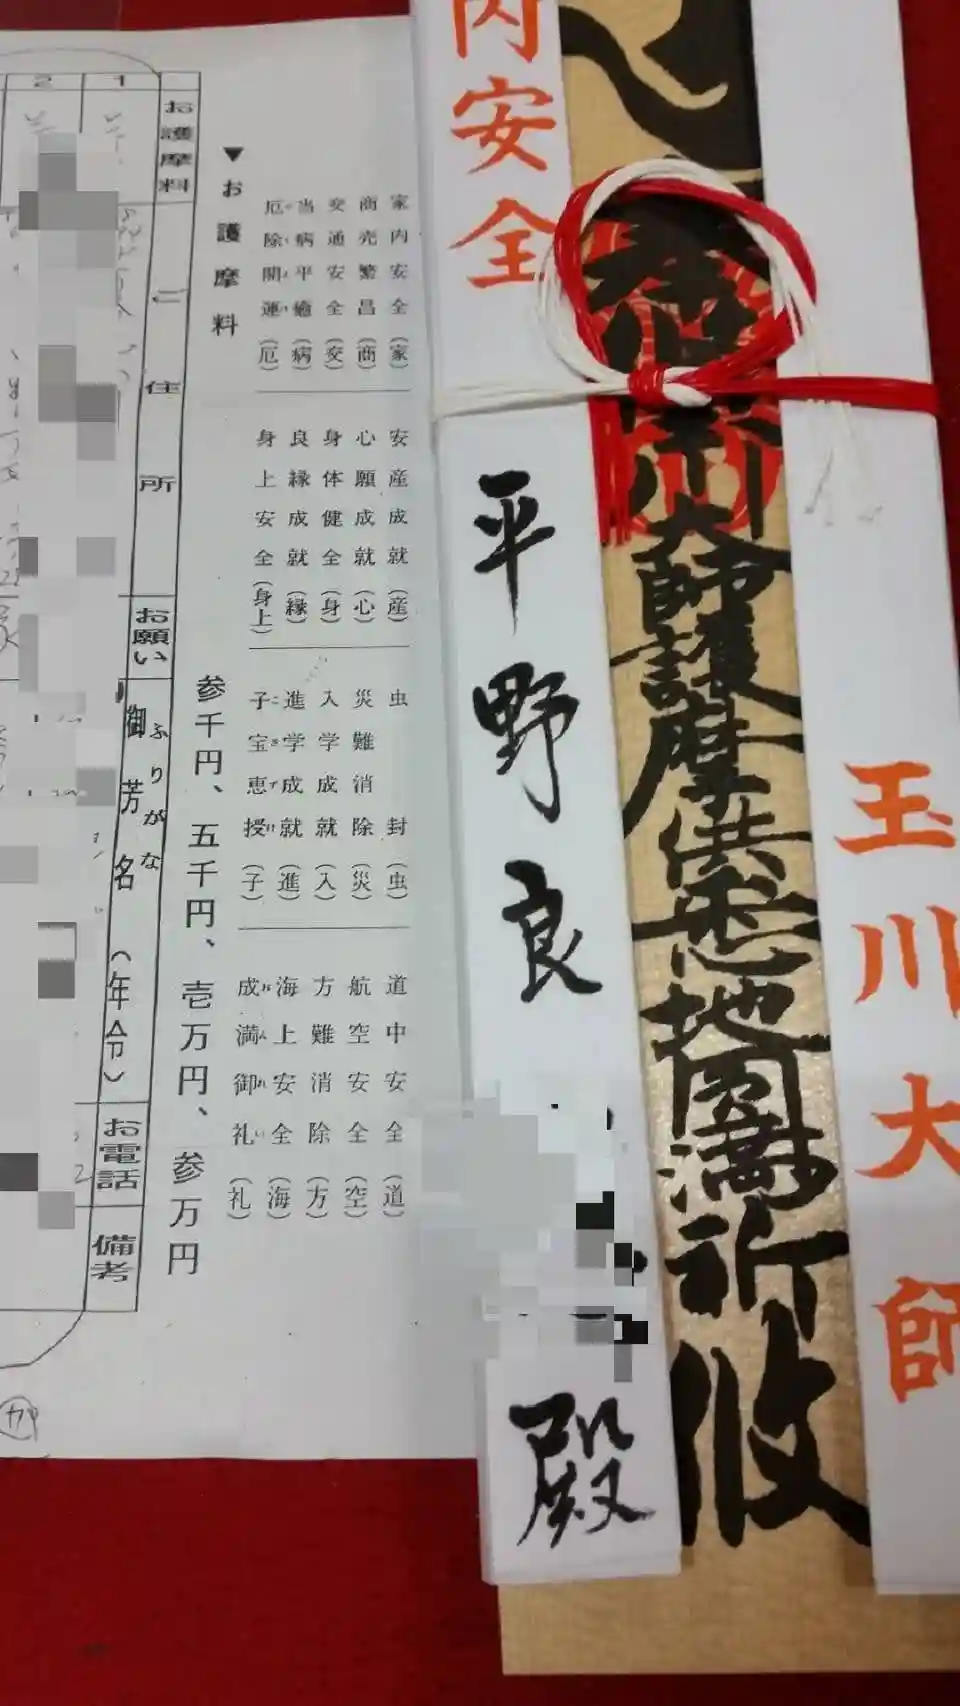 玉川大師
大師護摩供悉地圓満祈攸
内安全
平野良
殿
家内安全(家)
商売繁昌(商)
交通安全(交)
当病平癒(病)
厄除開運(厄)
安産成就(産)
心願成就(心)
身体健全(身)
良縁成就(縁)
身上安全(身上)
虫封(虫)
災難消除(災)
入学成就(入)
進学成就(進)
子宝恵授(子)
道中安全(道)
航空安全(空)
方難消除(方)
海上安全(海)
成満御礼(礼)
▼お護摩料
参千円、五千円、壱万円、参万円
お護摩料
ご住所
お願い
ふりがな
御芳名(年令)
お電話
備考
1
2